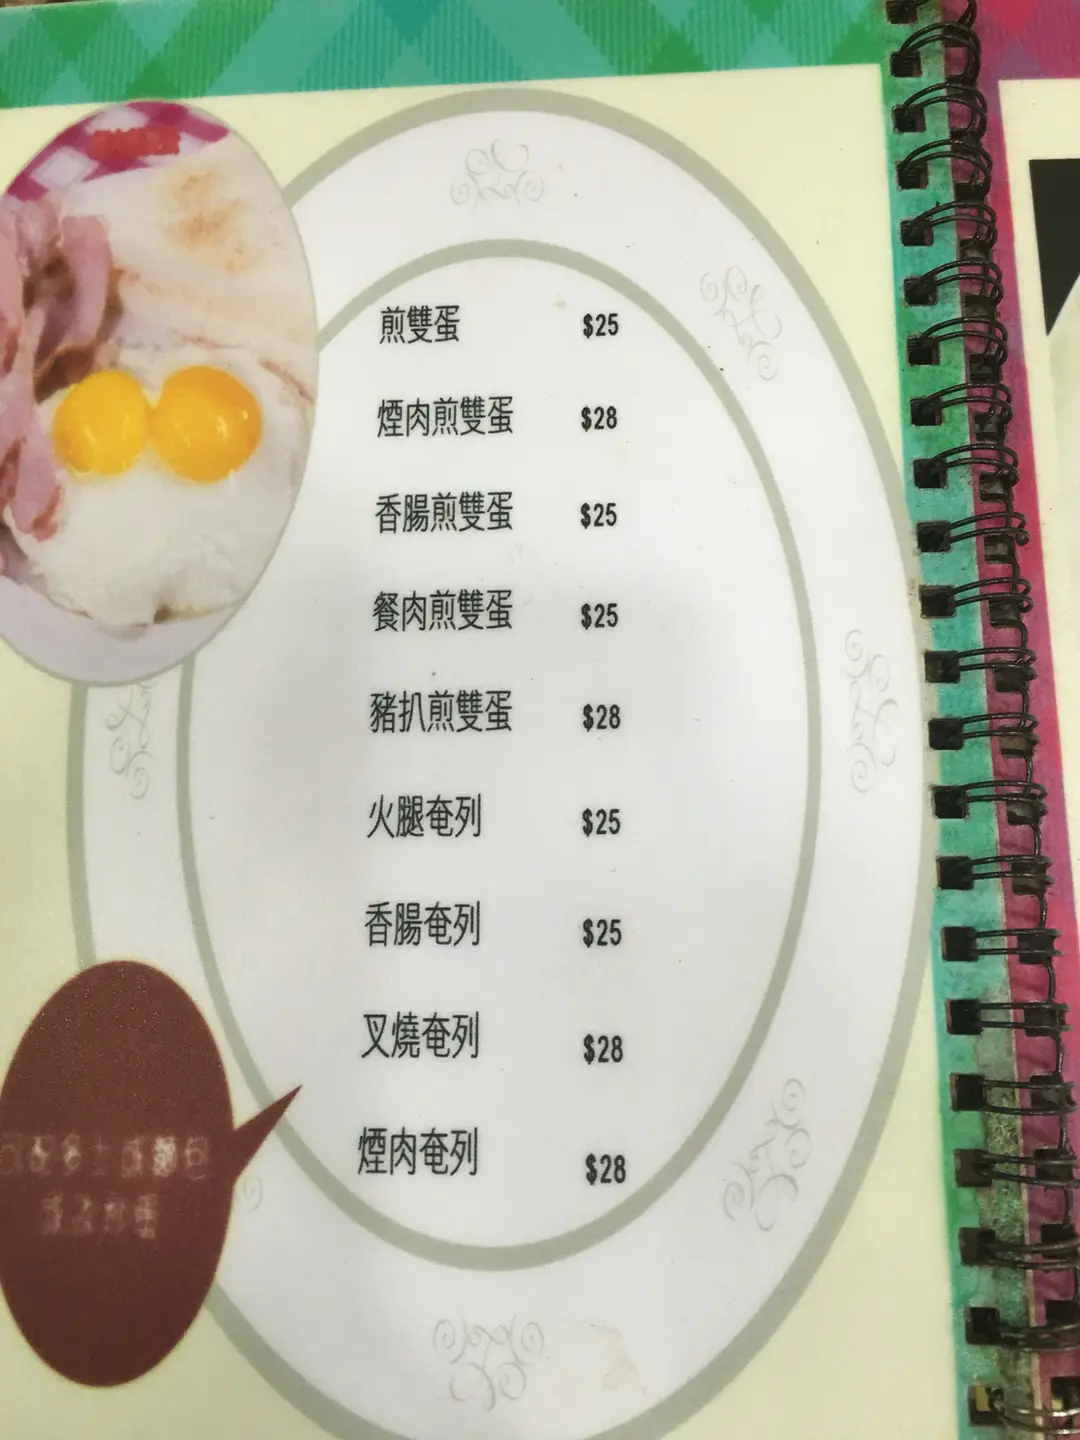 煎雙蛋 $25
煙肉煎雙蛋 $28
香腸煎雙蛋 $25
餐肉煎雙蛋 $25
豬扒煎雙蛋 $28
火腿奄列 $25
香腸奄列 $25
叉燒奄列 $28
煙肉奄列 $28